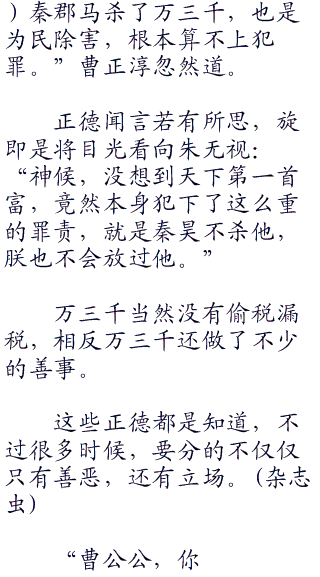 ）秦郡马杀了万三千，也是
为民除害，根本算不上犯
罪。”曹正淳忽然道。
正德闻言若有所思，旋
即是将目光看向朱无视：
“神候，没想到天下第一首
富，竟然本身犯下了这么重
的罪责，就是秦昊不杀他，
朕也不会放过他。”
万三千当然没有偷税漏
税，相反万三千还做了不少
的善事。
这些正德都是知道，不
过很多时候，要分的不仅仅
只有善恶，还有立场。（杂志
虫）
“曹公公，你